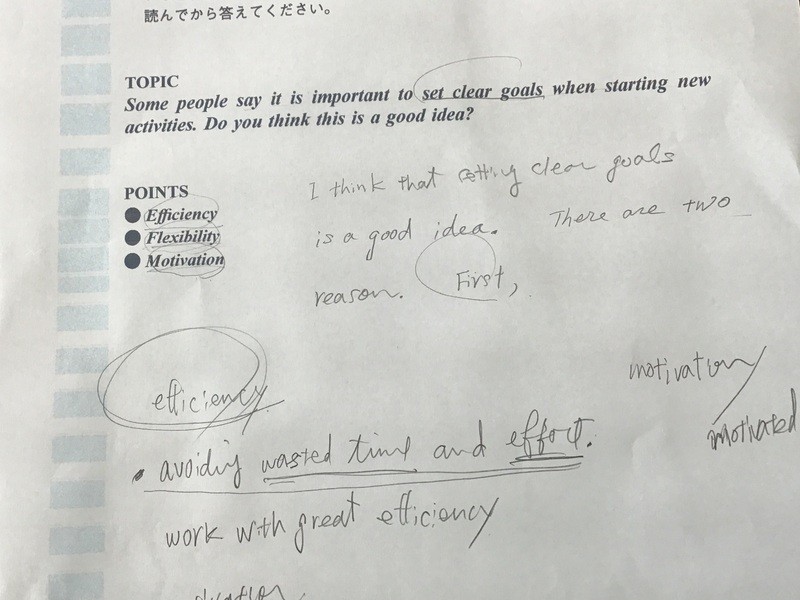 読んでから答えてください。
TOPIC
Some people say it is important to set clear goals when starting new
activities. Do you think this is a good idea?
POINTS
● Efficiency
● Flexibility
● Motivation
I think that setting clear goals
is a good idea. There are two
reason. First,
efficiency
motivation
motivated
• avoiding wasted time and effort.
work with great efficiency